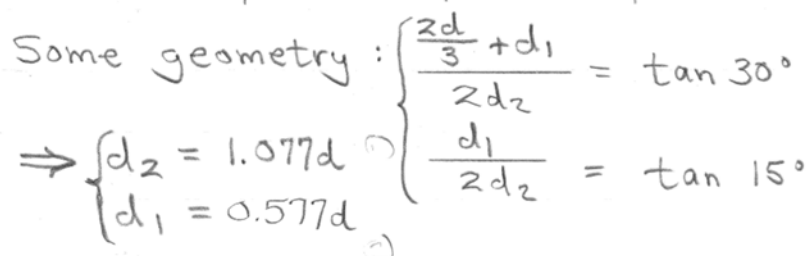 Some geometry : { (2d/3 + d₁) / 2d₂ = tan 30°
d₁ / 2d₂ = tan 15°
⇒ { d₂ = 1.077d
d₁ = 0.577d